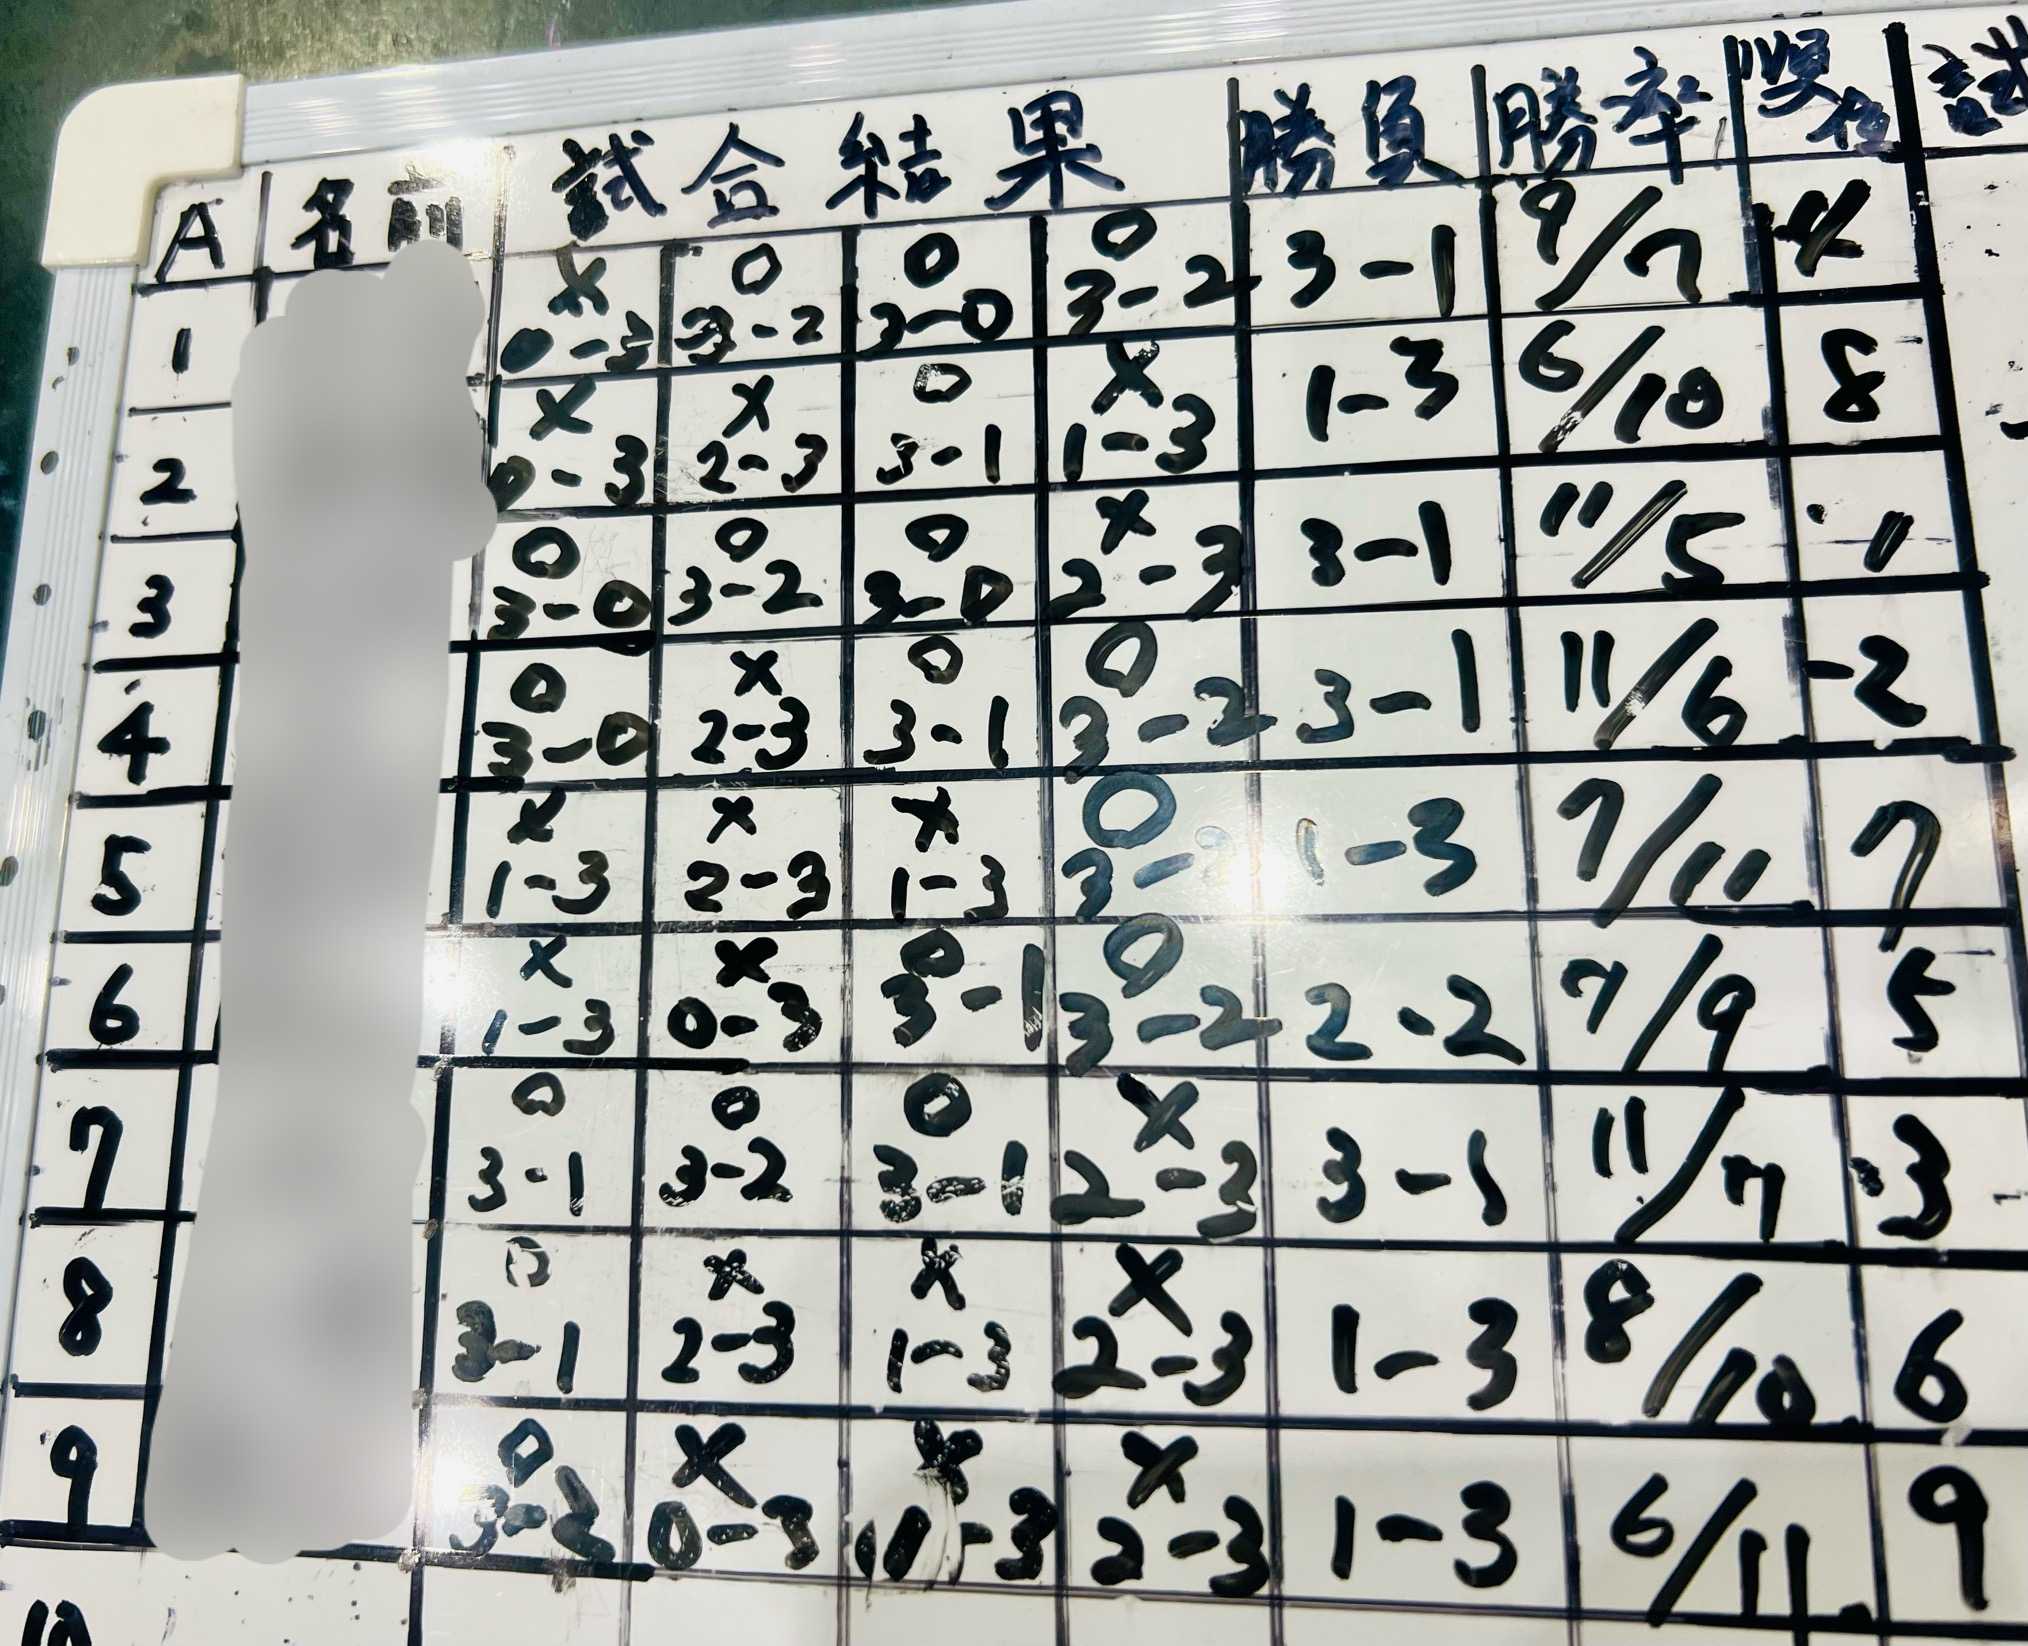 A 名前 試合結果 勝負 勝率 順位 試
1 × 0-3 ○ 3-2 ○ 3-0 ○ 3-2 3-1 9/7 4
2 × 0-3 × 2-3 ○ 3-1 × 1-3 1-3 6/10 8
3 ○ 3-0 ○ 3-2 ○ 3-0 × 2-3 3-1 11/5 1
4 ○ 3-0 × 2-3 ○ 3-1 ○ 3-2 3-1 11/6 2
5 × 1-3 × 2-3 × 1-3 ○ 3-2 1-3 7/11 7
6 × 1-3 × 0-3 ○ 3-1 ○ 3-2 2-2 7/9 5
7 ○ 3-1 ○ 3-2 ○ 3-1 × 2-3 3-1 11/7 3
8 ○ 3-1 × 2-3 × 1-3 × 2-3 1-3 8/10 6
9 ○ 3-2 × 0-3 × 1-3 × 2-3 1-3 6/11 9
10